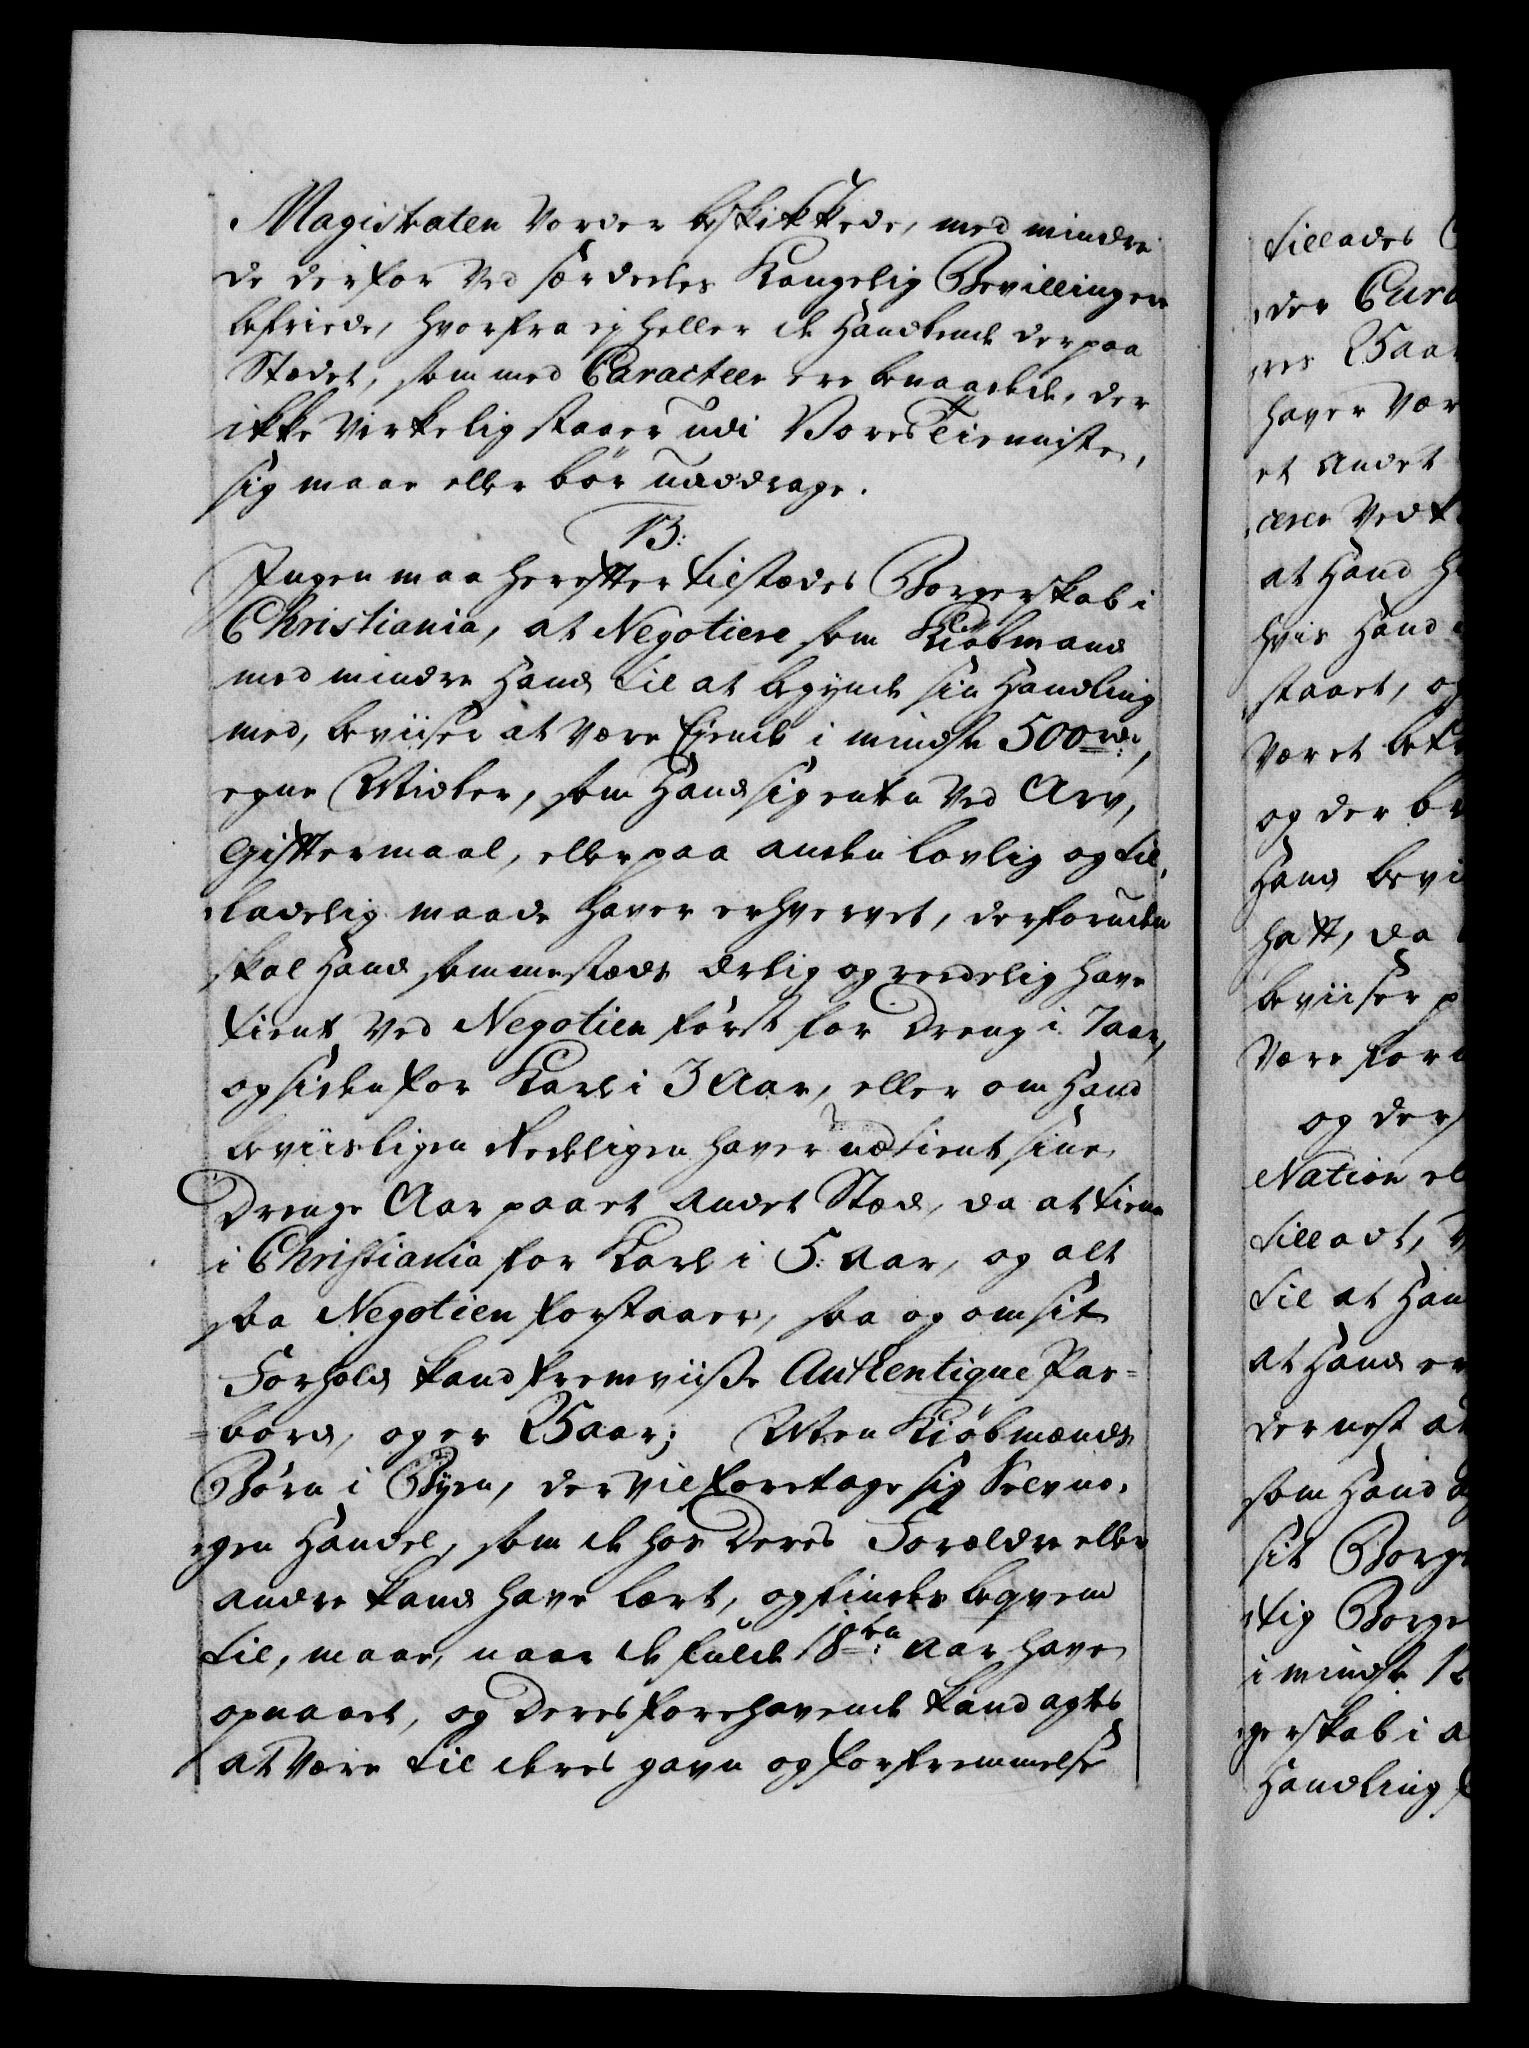 Magistraten vorder beskikkede, med mindre
de derfor ved særdeeles Kongelig Bevillinger
befriede, hvorfra ej heller de Handlende der paa
Stædet, som med Caracteer ere benaadede, der
ikke virkelig staaer udi Vores Tienniste,
sig maae eller bør unddrage.
13:
Ingen maa herefter tilstædes Borgerskab i
Christiania, at Negotiere som Kiøbmand
med mindre Hand til at begynde sin Handling
med, beviiser at være Ejende i mindste 500 rdr.,
egne Midler, som Hand sig enten ved Arv,
Gifftermaal, eller paa anden lovlig og til-
ladelig maade haver erhvervet, desforuden
skal Hand sammestæds ærlig og reedelig have
tient ved Negotien først for Dreng i 7 aar,
og siden for Karl i 3 Aar, eller om Hand
beviisligen Redeligen haver udtient sine
Drenge Aar paa et andet Stæd, da at tiene
i Christiania for Karl i 5: Aar, og alt
saa Negotien forstaaer, saa og om sit
Forhold kand fremviise Authentique Pas=
=bord, og er 25 aar; Men Kiøbmænds
Børn i Byen, der vil foretage sig Selv no-
gen Handel, som de hos Deres Forældre eller
andre kand have lært, og findes beqvem
til, maae, naar de fulde 18ten: Aar have
opnaaet, og Deres forehavende kand agtes
at være til deres gavn og forfremmelse
tillades
der
res 25 aar
haver vær
et andet
at Hand
hvis Hand
staaet, og
været
og der
Hand
hafft, da
beviiser
være
og der
Nation
tilladt,
til at Han
at Hand er
der nest at
som Hand
sit Borge
tig Borge
i mindste
gerskab i
Handling